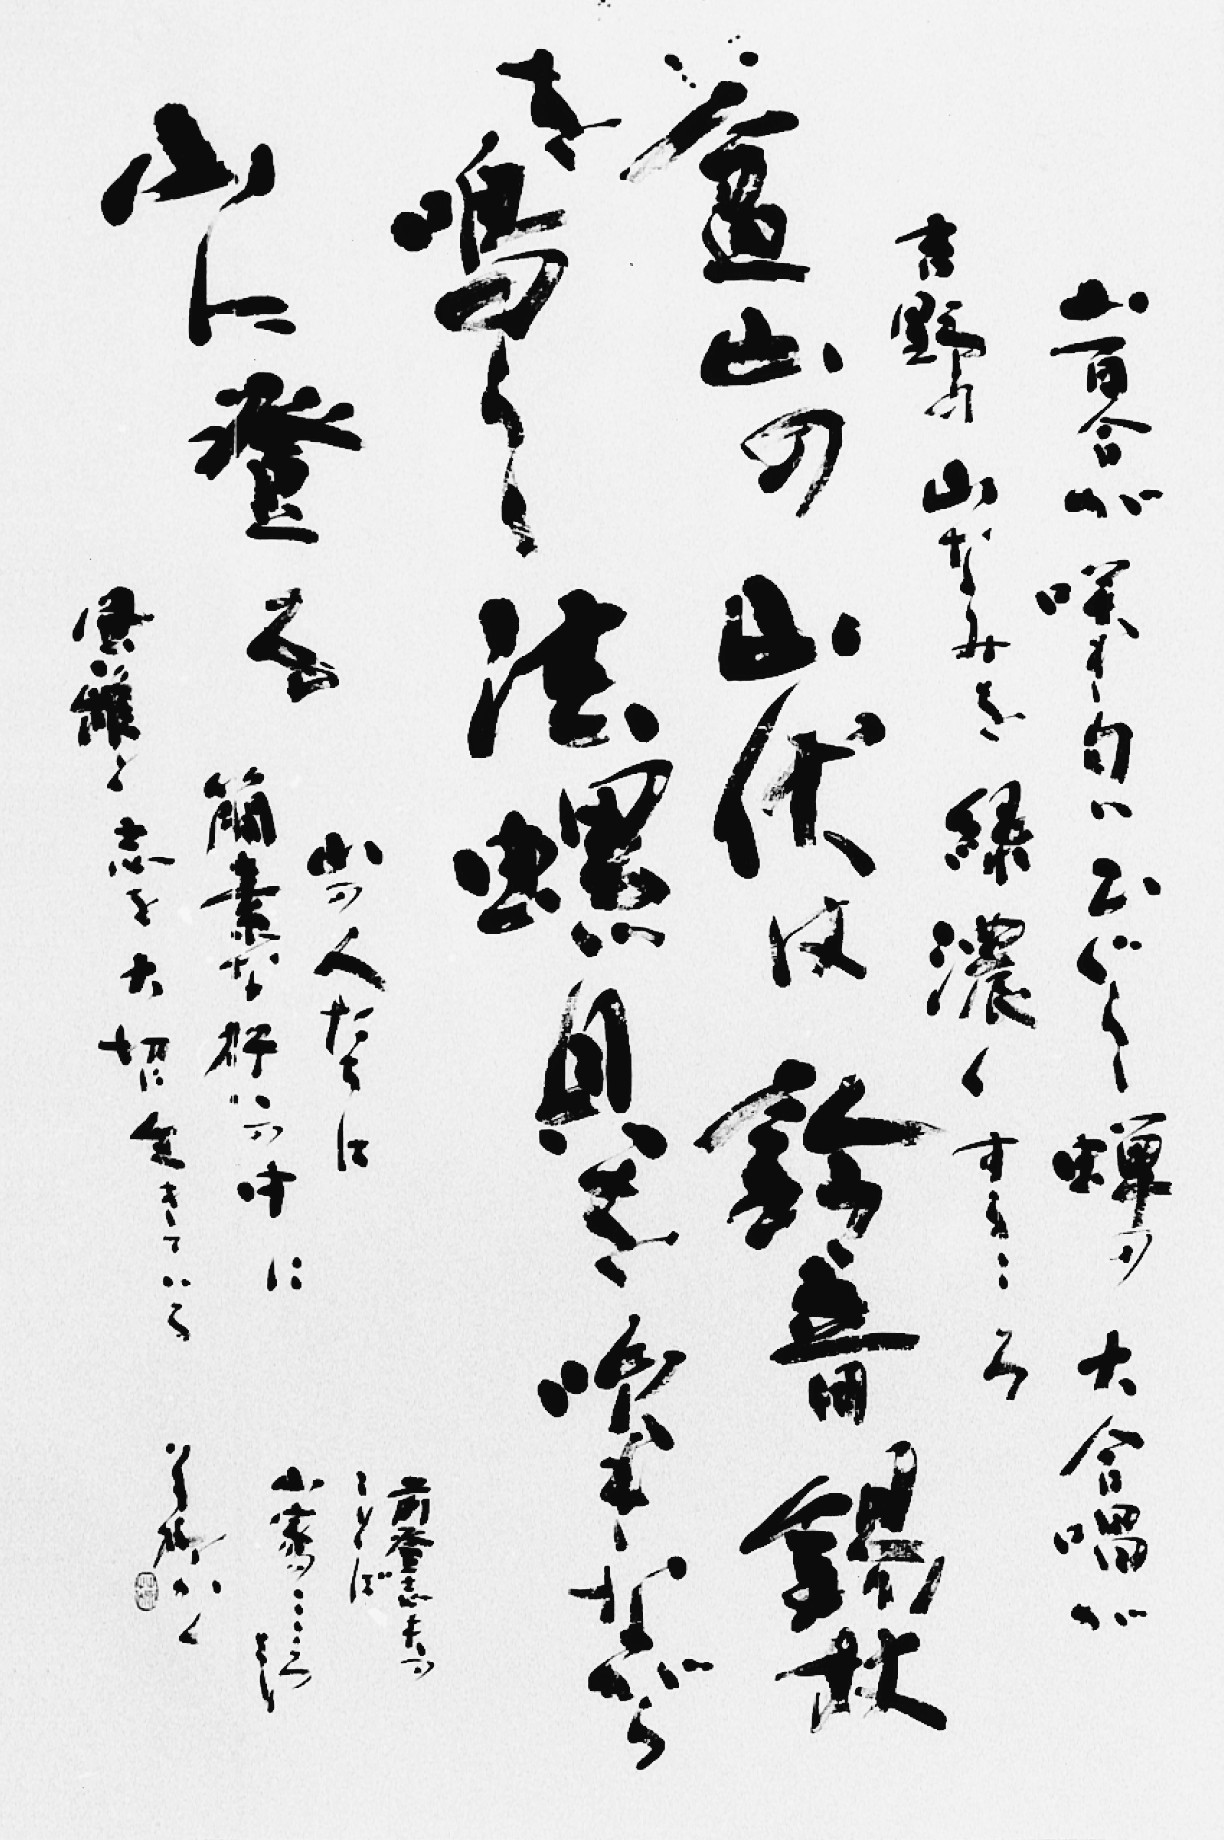 山百合が咲き匂いひぐらし蝉の大合唱が
吉野の山なみを緑濃くするころ
山の山伏は鈴音錫杖
を鳴らし法螺貝を吹きながら
山に登る
山の人たちは
簡素な佇いの中に
風雅と志を大切に生きている
前登志夫の
ことば
かく